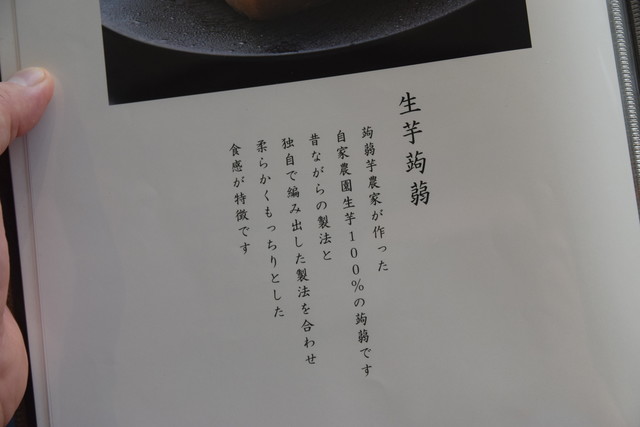 生芋蒟蒻
蒟蒻芋農家が作った
自家農園生芋100%の蒟蒻です
昔ながらの製法と
独自で編み出した製法を合わせ
柔らかくもっちりとした
食感が特徴です